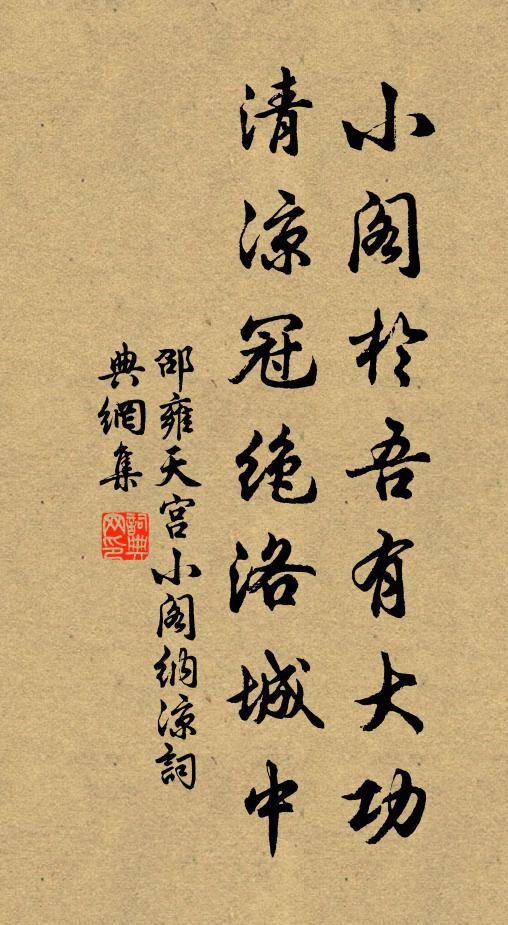 小阁於吾有大功
清凉冠绝洛城中
邵雍天宫小阁纳凉詞
典網集
詞典网印